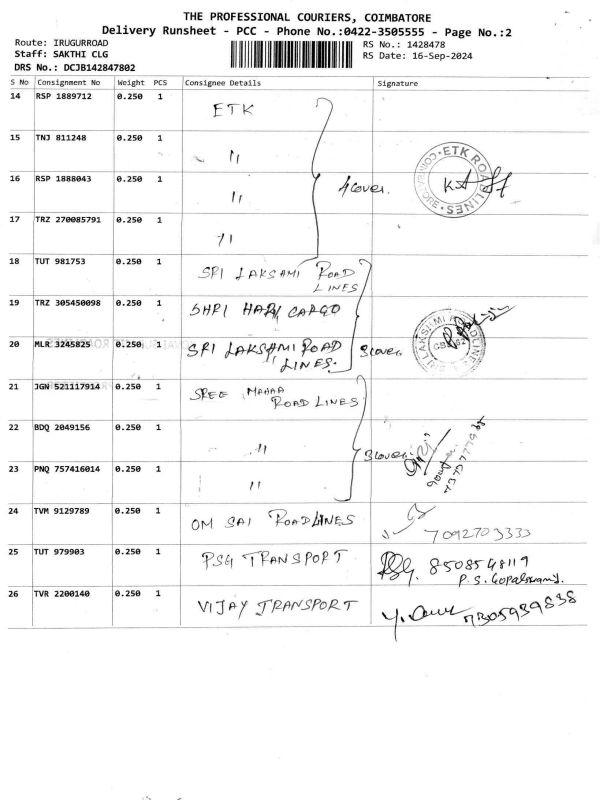 THE PROFESSIONAL COURIERS, COIMBATORE
Delivery Runsheet - PCC - Phone No.:0422-3505555 - Page No.:2
Route: IRUGURROAD
RS No.: 1428478
Staff: SAKTHI CLG
RS Date: 16-Sep-2024
DRS No.: DCJB142847802
S No Consignment No Weight PCS Consignee Details Signature
14 RSP 1889712 0.250 1 ETK
15 TNJ 811248 0.250 1 "
ETK ROADLINES
16 RSP 1888043 0.250 1 " 4 cover.
17 TRZ 270085791 0.250 1 "
18 TUT 981753 0.250 1 SRI LAKSHMI ROAD
LINES
19 TRZ 305450098 0.250 1 SHRI HARI CARGO
20 MLR 3245825 0.250 1 SRI LAKSHMI ROAD
LINES. 3 cover.
21 JGN 521117914 0.250 1 SREE MAHAA
ROAD LINES
22 BDQ 2049156 0.250 1 " 3 cover.
23 PNQ 757416014 0.250 1 "
24 TVM 9129789 0.250 1 OM SAI ROADLINES
7092703333
25 TUT 979903 0.250 1 PSG TRANSPORT PSG. 8508548119
P.S.Gopalswamy.
26 TVR 2200140 0.250 1 VIJAY TRANSPORT 7305939838